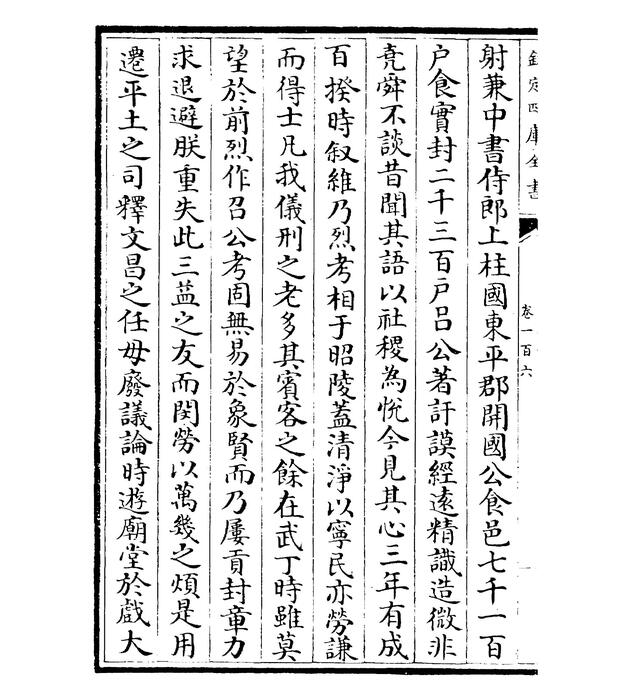 欽定四庫全書
卷一百六
射兼中書侍郎上柱國東平郡開國公食邑七千一百
户食實封二千三百户吕公著訏謨經遠精識造微非
堯舜不談昔聞其語以社稷為悅今見其心三年有成
百揆時叙維乃烈考相于昭陵蓋清淨以寧民亦勞謙
而得士凡我儀刑之老多其賓客之餘在武丁時雖莫
望於前烈作召公考固無易於象賢而乃屢貢封章力
求退避朕重失此三益之友而閔勞以萬幾之煩是用
遷平土之司釋文昌之任毋廢議論時遊廟堂於戲大